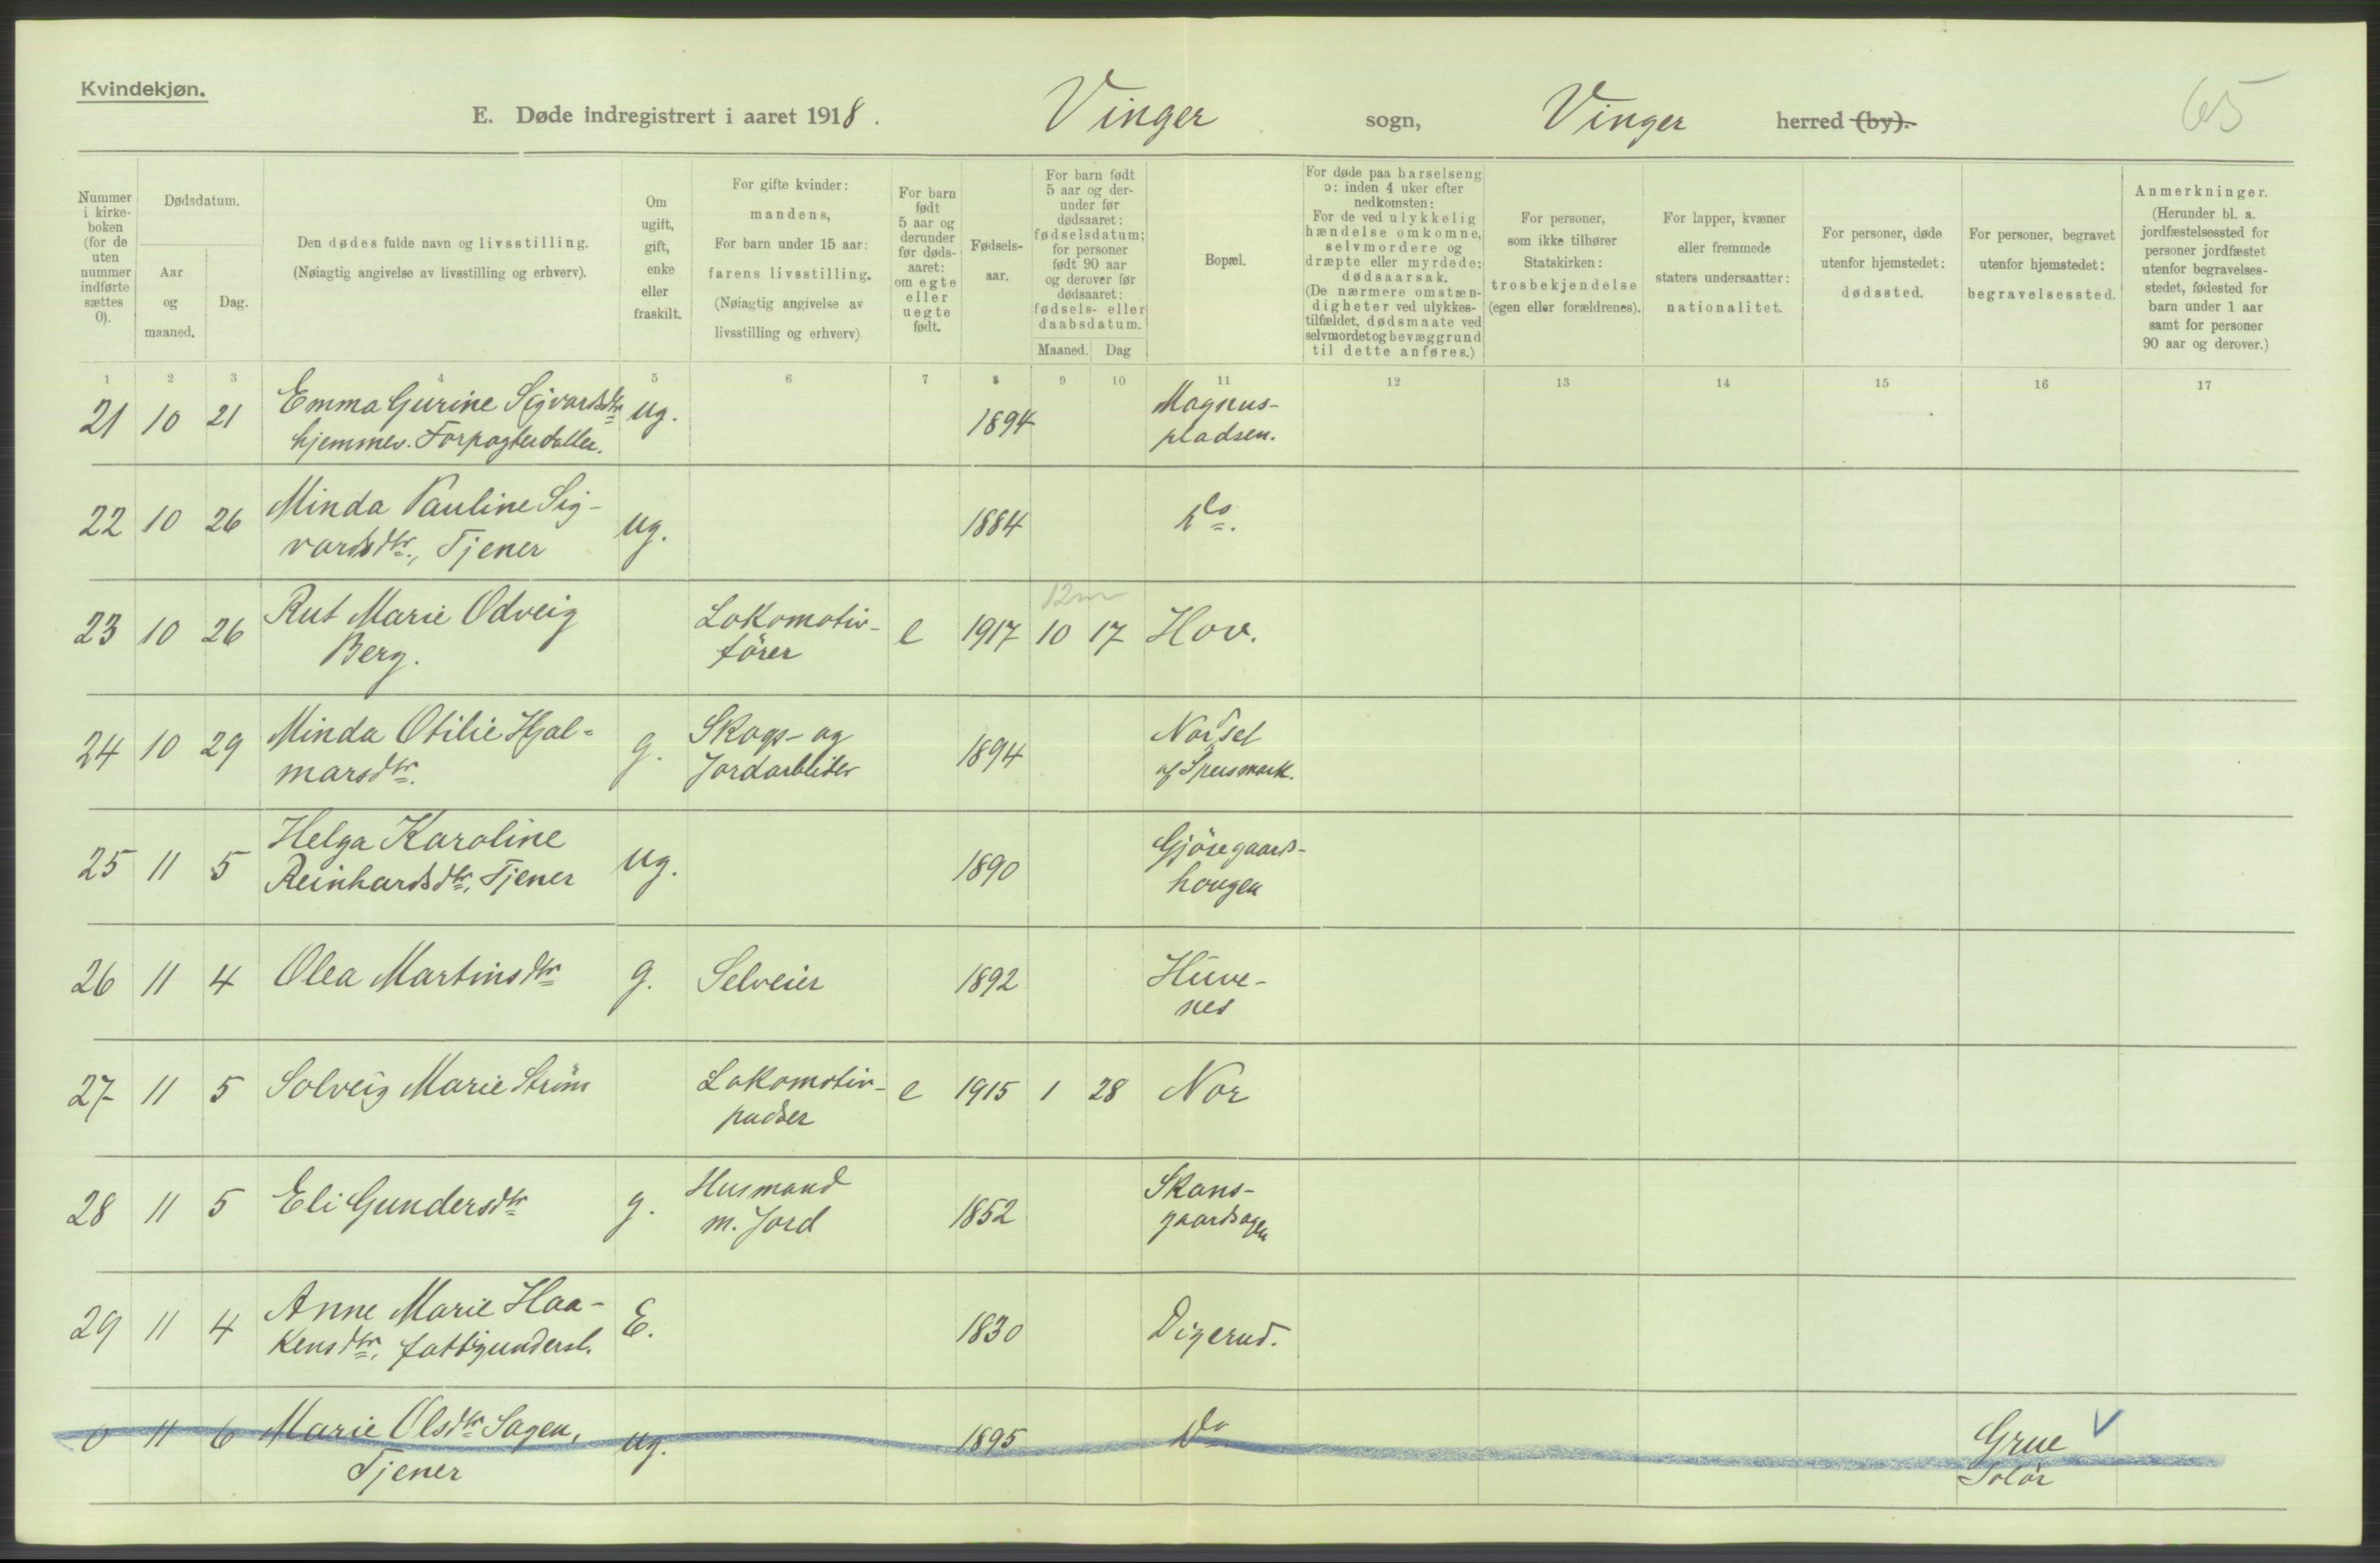 Kvindekjøn.
E. Døde indregistrert i aaret 1918. Vinger sogn, Vinger herred (by).
65
Nummer i kirke- boken (for de uten nummer indførte sættes 0).
Dødsdatum.
Aar og maaned.
Dag.
Den dødes fulde navn og livsstilling.
(Nøiagtig angivelse av livsstilling og erhverv).
Om ugift, gift, enke eller fraskilt.
For gifte kvinder: mandens,
For barn under 15 aar: farens livsstilling.
(Nøiagtig angivelse av livsstilling og erhverv)
For barn født 5 aar og derunder før døds- aaret: om egte eller uegte født.
Fødsels- aar.
For barn født 5 aar og der- under før dødsaaret: fødselsdatum; for personer født 90 aar og derover før dødsaaret: fødsels- eller daabsdatum.
Maaned. Dag
Bopæl.
For døde paa barselseng ɔ: inden 4 uker efter nedkomsten:
For de ved ulykkelig hændelse omkomne, selvmordere og dræpte eller myrdede: dødsaarsak.
(De nærmere omstæn- digheter ved ulykkes- tilfældet, dødsmaate ved selvmordet og bevæggrund til dette anføres.)
For personer, som ikke tilhører Statskirken: trosbekjendelse (egen eller forældrenes).
For lapper, kvæner eller fremmede staters undersaatter: nationalitet.
For personer, døde utenfor hjemstedet: dødssted.
For personer, begravet utenfor hjemstedet: begravelsessted.
Anmerkninger.
(Herunder bl. a. jordfæstelsessted for personer jordfæstet utenfor begravelses- stedet, fødested for barn under 1 aar samt for personer 90 aar og derover.)
1 2 3 4 5 6 7 8 9 10 11 12 13 14 15 16 17
21 10 21 Emma Gurine Sigvardsdtr ug. 1894 Magnus-
hjemmev. Forpagterdatter. pladsen.
22 10 26 Minda Pauline Sig- ug. 1884 do.
vardsdtr., Tjener
12 m
23 10 26 Rut Marie Odveig Lokomotiv- e 1917 10 17 Hov.
Berg. fører
24 10 29 Minda Otilie Hjal- g. Skogs- og 1894
marsdtr. Jordarbeider
25 11 5 Helga Karoline ug. 1890 Gjøsegaards-
Reinhardsdtr, Tjener hougen
26 11 4 Olea Martinsdtr g. Selveier 1892 Huve-
nes
27 11 5 Solveig Marie Strøm Lokomotiv- e 1915 1 28 Nor
pudser
28 11 5 Eli Gundersdtr g. Husmand 1852 Skans-
m. Jord
29 11 4 Anne Marie Haa- E. 1830 Digerud.
kensdtr, fattigunderst.
0 11 6 Marie Olsdtr Sagen, ug. 1895 Do Grue
Tjener Solør